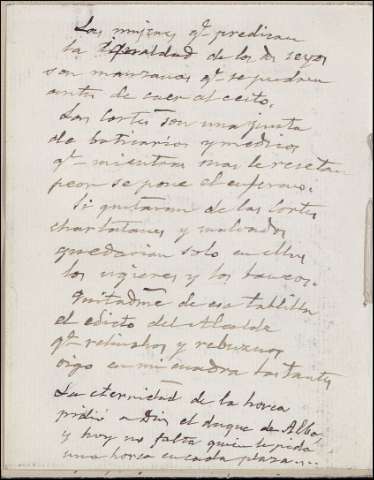 Las mujeres qe predican
la igualdad de los dos sexos
son manzanas qe se pudren
antes de caer al cesto.
Las Cortes son una junta
de boticarios y medicos
qe mientras mas le recetan
peor se pone el enfermo.
Si quitaran de las Cortes
charlatanes y malvados
quedarian solo en ellas
los ugieres y los bancos.
Quitadme de esa tablilla
el edicto del Alcalde
qe relinchos y rebuznos
oigo en mi cuadra bastantes
La eternidad de la horca
pidió a Dios el duque de Alba,
y hoy no falta quien le pida
una horca en cada plaza....